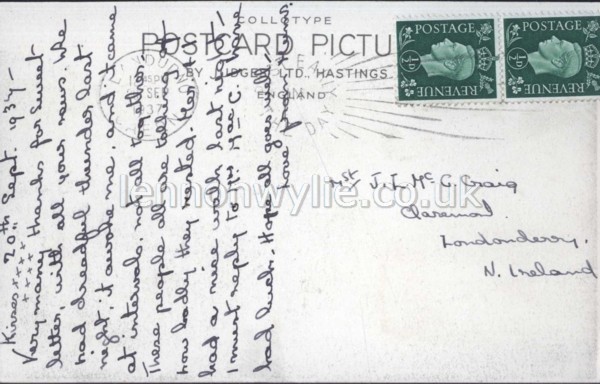 COLLOTYPE
POSTCARD PICTU
BY JUDGES LTD., HASTINGS
ENGLAND
POSTAGE
REVENUE
½D
POSTAGE
REVENUE
½D
SEP
37
DAY
Kisses ++++ 20th Sept. 1937 -
++++
Very many thanks for sweet
letter, with all your news. We
had dreadful thunder last
night it awoke me, and it came
at intervals, not all together.
These people all are telling that
how badly they rested. Mert & I
had a nice walk last night.
I must reply to Mrs MacC. We have
had luck. Hope all goes well
Love from Hans.
J. L. McC. Craig
Claremont
Londonderry.
N. Ireland
lennonwylie.co.uk